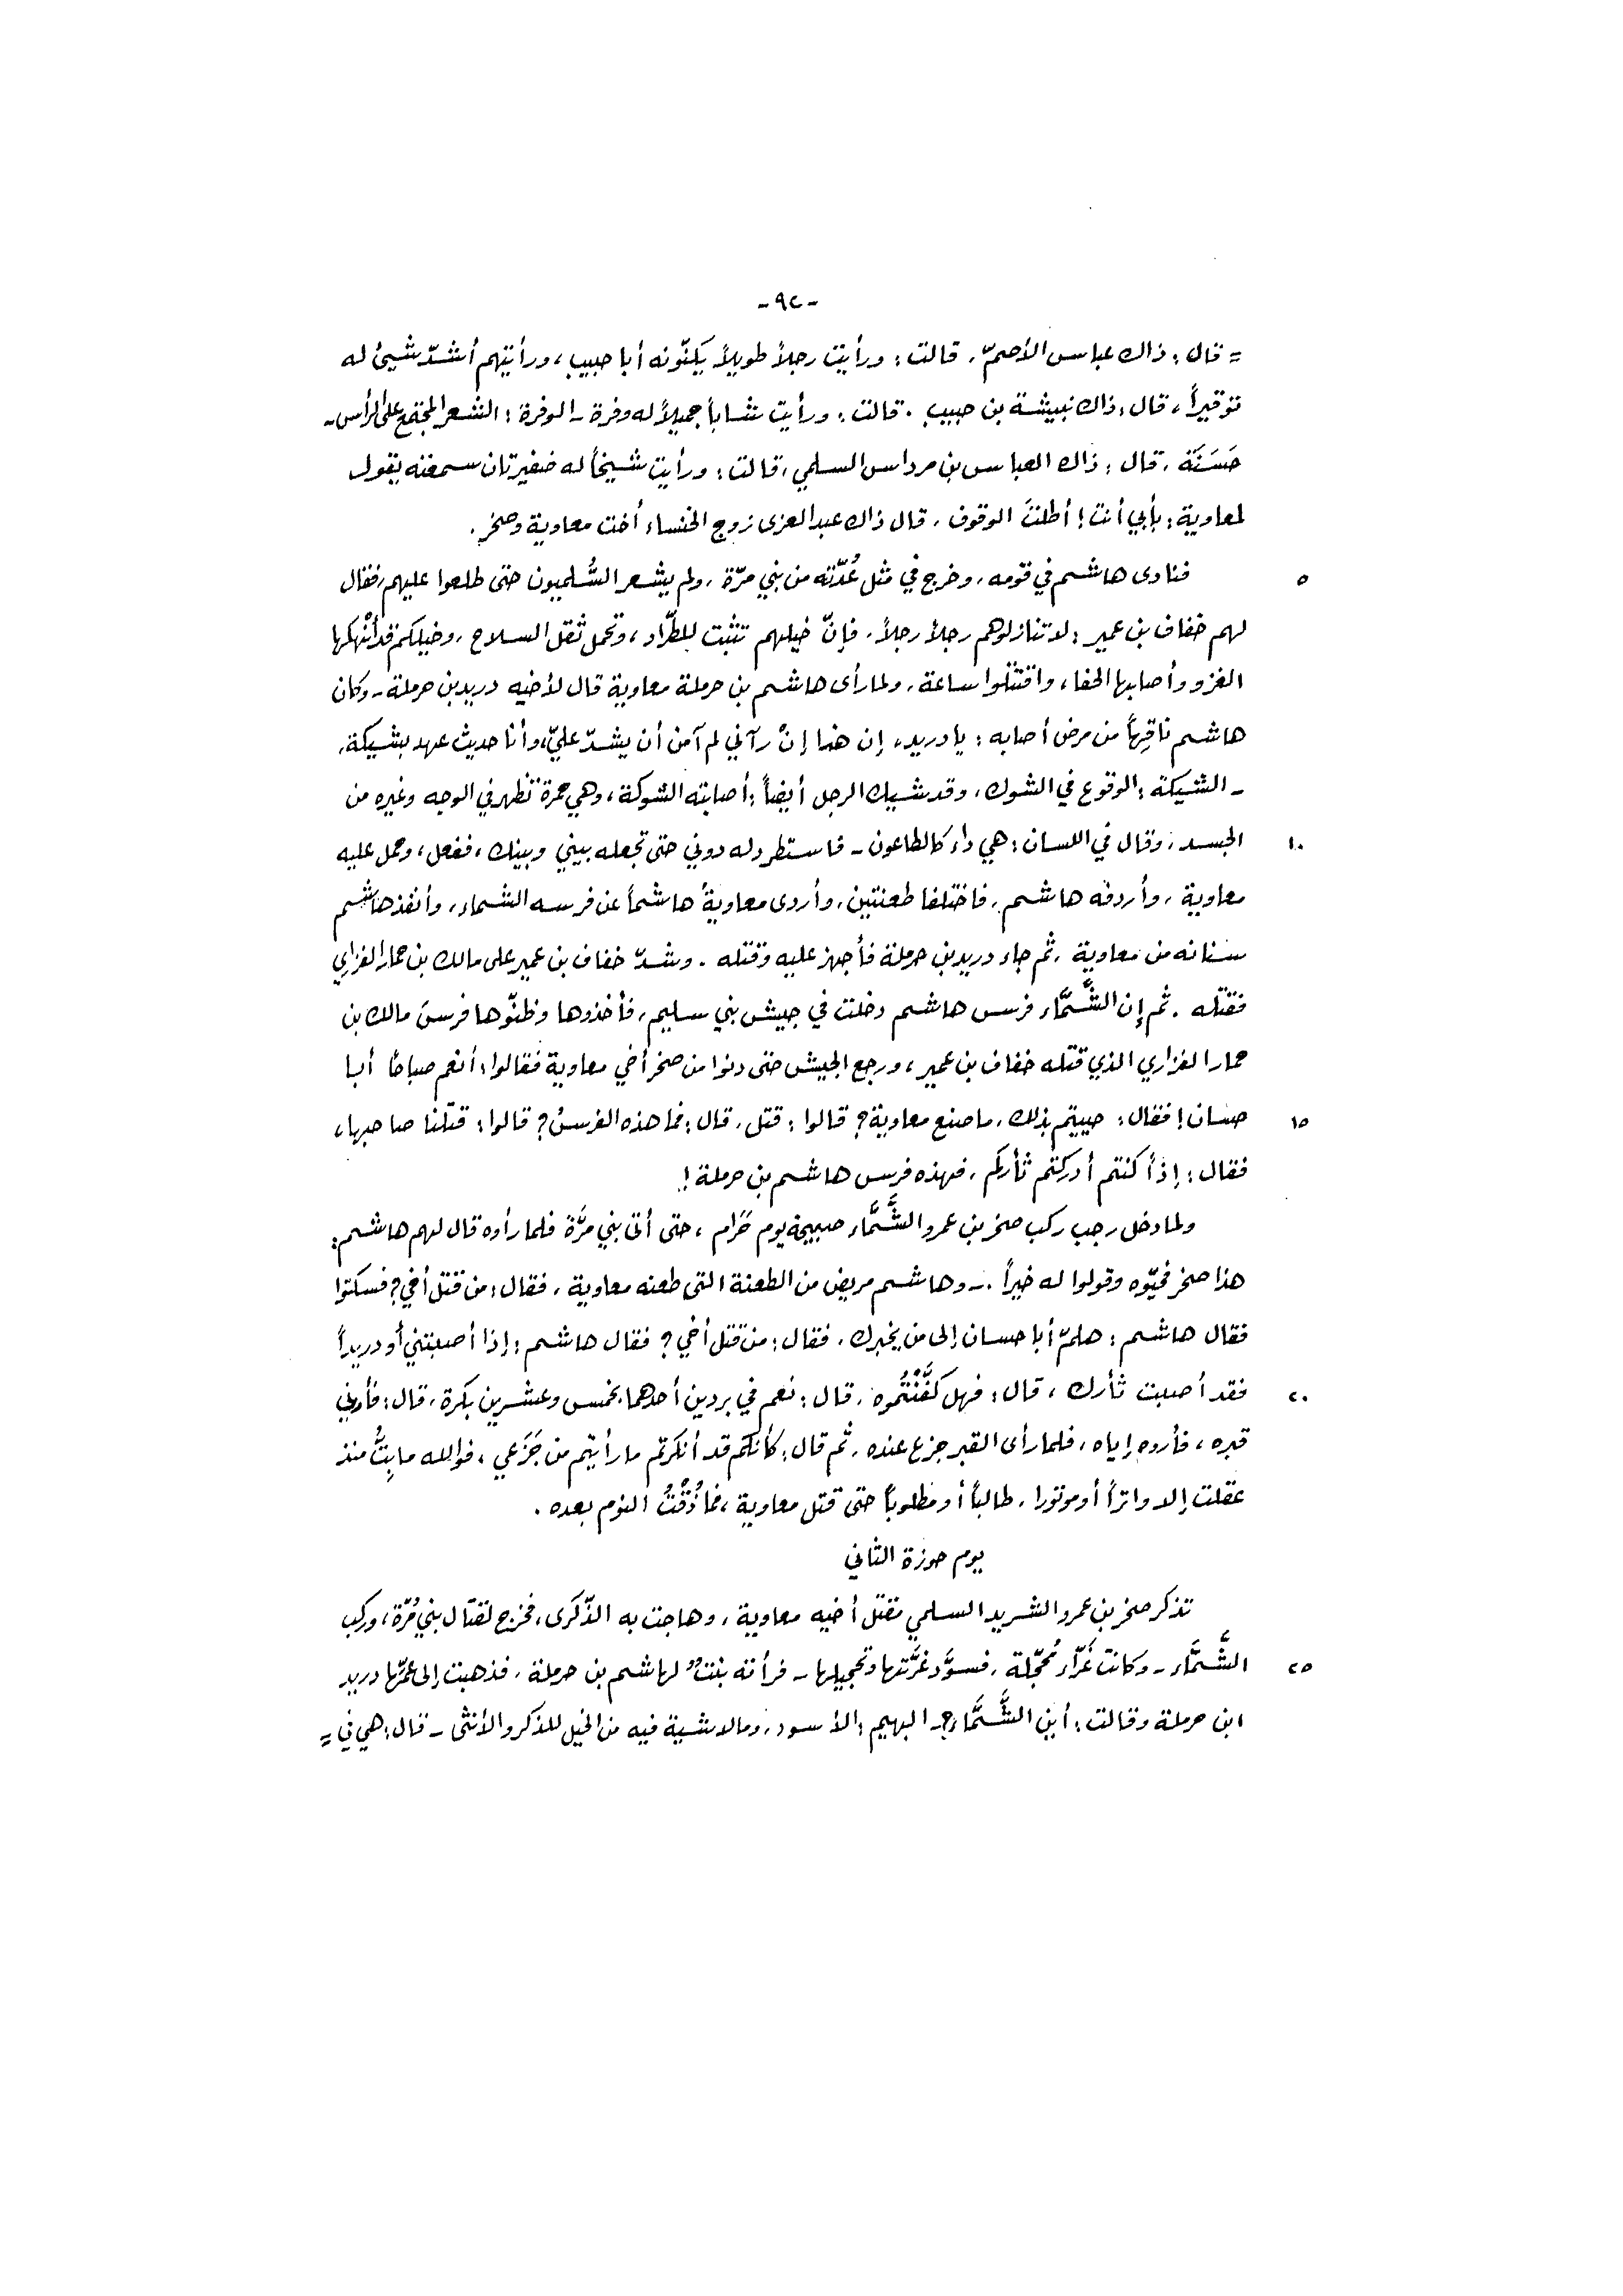 -٩٢-
= قال : ذاك عباس الأصمّ ، قالت : ورأيت رجلاً طويلاً يكنّونه أبا حبيب ، ورأيتهم أشدّ شيئ له
توقيراً ، قال : ذاك نبيشة بن حبيب . قالت : ورأيت شاباً جميلاً له وفرة - الوفرة : الشعر المجتمع على الرأس -
حَسَنَة ، قال : ذاك العباس بن مرداس السلمي ، قالت : ورأيت شيخاً له ضفيرتان سمعته يقول
لمعاوية : بأبي أنت ! أطلتَ الوقوف ، قال ذاك عبد العزى زوج الخنساء أخت معاوية وصخر .
٥ فنادى هاشم في قومه ، وخرج في مثل عُدّته من بني مرّة ، ولم يشعر السُّلميون حتى طلعوا عليهم ، فقال
لهم خفاف بن عمير : لا تنازلوهم رجلاً رجلاً ، فإنّ خيلهم تثبت للطّراد ، وتحمل ثقل السلاح ، وخيلكم قد أنْهكها
الغزو وأصابها الحفا ، واقتتلوا ساعة ، ولما رأى هاشم بن حرملة معاوية قال لأخيه دريد بن حرملة - وكان
هاشم ناقِهاً من مرض أصابه : يا دريد ، إن هذا إنْ رآني لم آمن أن يشدّ عليّ ، وأنا حديث عهد بشيكة ،
- الشيكة : الوقوع في الشوك ، وقد شيك الرجل أيضاً : أصابته الشوكة ، وهي حمرة تظهر في الوجه وغيره من
١٠ الجسد ، وقال في اللسان : هي داء كالطاعون - فاستطرد له دوني حتى تجعله بيني وبينك ، ففعل ، وحمل عليه
معاوية ، وأردفه هاشم ، فاختلفا طعنتين ، وأردى معاويةُ هاشماً عن فرسه الشماء ، وأنفذ هاشم
سنانه من معاوية ، ثم جاء دريد بن حرملة فأجهز عليه وقتله . وشدّ خفاف بن عمير على مالك بن حمار الفزاري
فقتله . ثم إن الشَّمَّاء فرس هاشم دخلت في جيش بني سليم ، فأخذوها وظنّوها فرسَ مالك بن
حمار الفزاري الذي قتله خفاف بن عمير ، ورجع الجيش حتى دنوا من صخر أخي معاوية فقالوا : أنعم صباحاً أبا
١٥ حسان ! فقال : حييتم بذلك ، ما صنع معاوية ؟ قالوا : قتل ، قال : فما هذه الفرسُ ؟ قالوا : قتلنا صاحبها ،
فقال : إذاً كنتم أدركتم ثأركم ، فهذه فرس هاشم بن حرملة !.
ولما دخل رجب ركب صخر بن عمرو الشَّمَّاء صبيحة يوم حَرام ، حتى أتى بني مَرَّة فلما رأوه قال لهم هاشم :
هذا صخر فحيّوه وقولوا له خيراً .- وهاشم مريض من الطعنة التي طعنه معاوية ، فقال : من قتل أخي ؟ فسكتوا
فقال هاشم : هلمّ أبا حسان إلى من يخبرك ، فقال : من قتل أخي ؟ فقال هاشم : إذا أصبتني أو دريداً
٢٠ فقد أصبت ثأرك ، قال : فهل كَفَّنْتُموه ، قال : نعم في بردين أحدهما بخمس وعشرين بكرة ، قال : فأروني
قبره ، فأروه إياه ، فلما رأى القبر جزع عنده ، ثم قال : كأنكم قد أنكرتم ما رأيتم من جَزَعي ، فوالله ما بِتُّ منذ
عقلت إلا واتراً أو موتورا ، طالباً أو مطلوباً حتى قتل معاوية ، فما ذُقْتُ النوم بعده .
يوم حوزة الثاني
تذكر صخر بن عمرو الشريد السلمي مقتل أخيه معاوية ، وهاجت به الذّكرى ، فخرج لقتال بني مُرّة ، وركب
٢٥ الشَّمَّاء - وكانت غَرّاء مُحجّلة ، فسوَّد غرَّتها وتحجيلها - فرأته بنتٌ لهاشم بن حرملة ، فذهبت إلى عمّها دريد
ابن حرملة وقالت : أين الشَّمَّاء ؟ - البهيم : الأسود ، وما لا شية فيه من الخيل للذكر والأنثى - قال : هي في =